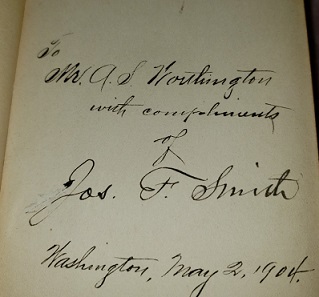 To
Mr. A. S. Worthington
with compliments
of
Jos. F. Smith
Washington, May 2, 1904.